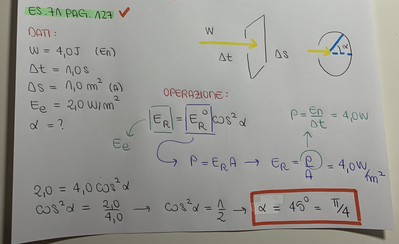 ES. 71 PAG. 127 ✓
DATI:
W = 4,0 J (En)
Δt = 1,0 s
Δs = 1,0 m² (A)
Ee = 2,0 W/m²
α = ?
W
Δt
Δs
α
OPERAZIONE:
E_R = E_R⁰ cos²α
Ee
P = En/Δt = 4,0 W
→ P = E_R A → E_R = P/A = 4,0 W/m²
2,0 = 4,0 cos²α
cos²α = 2,0/4,0 → cos²α = 1/2 → α = 45° = π/4